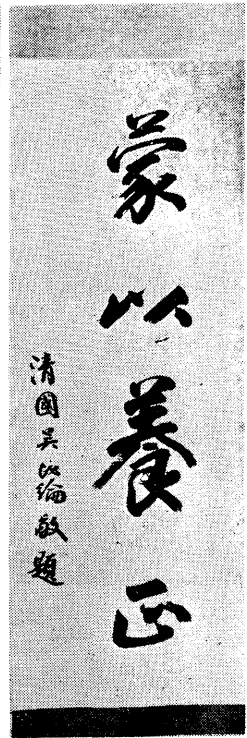 蒙以養正
清國吳汝綸敬題